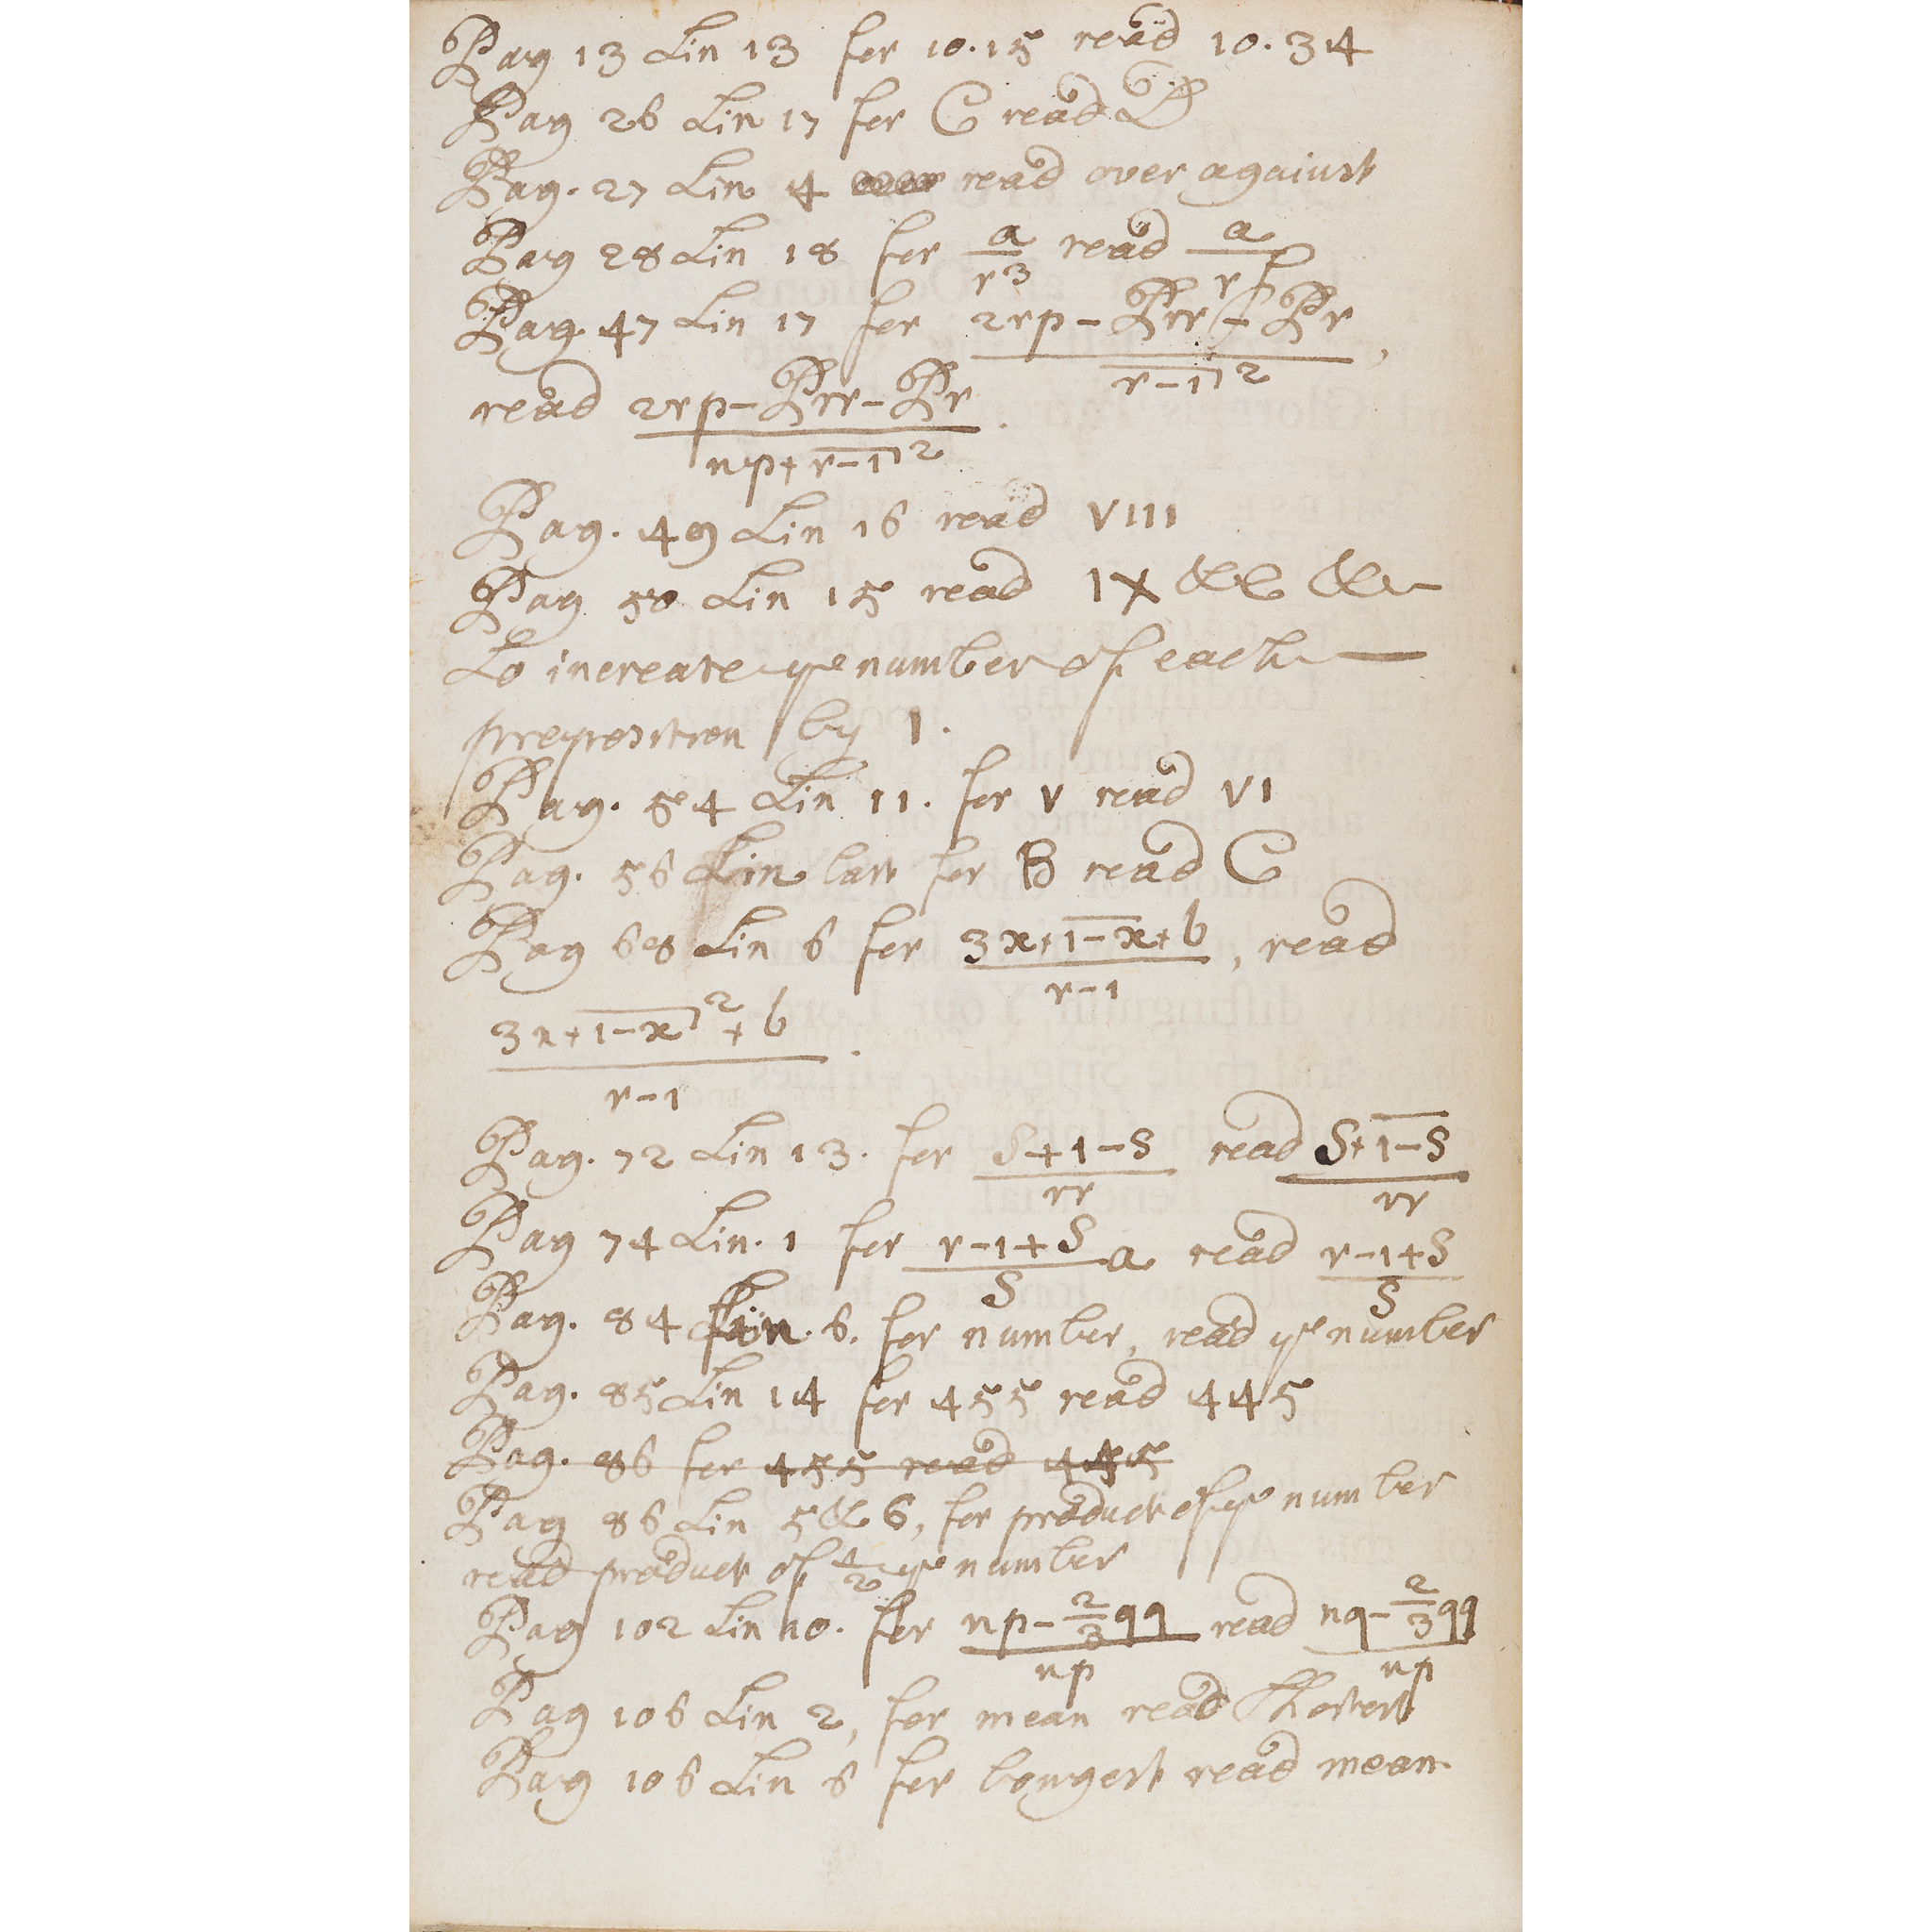 Pag 13 Lin 13 for 10.15 read 10.34
Pag 26 Lin 17 for C read D
Pag. 27 Lin 4 read over against
Pag 28 Lin 18 for a/r3 read a/r
Pag. 47 Lin 17 for (2rp-Prr-Pr)/(r-1)², 
read (2rp-Prr-Pr)/(np+(r-1)²).
Pag. 49 Lin 16 read VIII
Pag 50 Lin 15 read IX &c &c
To increase ye number of each
proposition by 1.
Pag. 54 Lin 11. for V read VI
Pag. 56 Lin last for B read C
Pag 68 Lin 6 for (3x+1-x+b)/(r-1), read
(3x+(1-x)²+b)/(r-1).
Pag. 72 Lin 13. for (S+1-S)/rr read (S+1-S)/rr
Pag 74 Lin. 1 for (r-1+S)/S a read (r-1+S)/S
Pag. 84 Lin. 6. for number, read ye number
Pag. 85 Lin 14 for 455 read 445
Pag. 86 for 455 read 445
Pag 86 Lin 5 & 6, for product of ye number
read product of 1/2 ye number
Pag 102 Lin 10. for (np-2/3qq)/np read (nq-2/3qq)/np
Pag 106 Lin 2, for mean read Shortest
Pag 106 Lin 6 for longest read mean